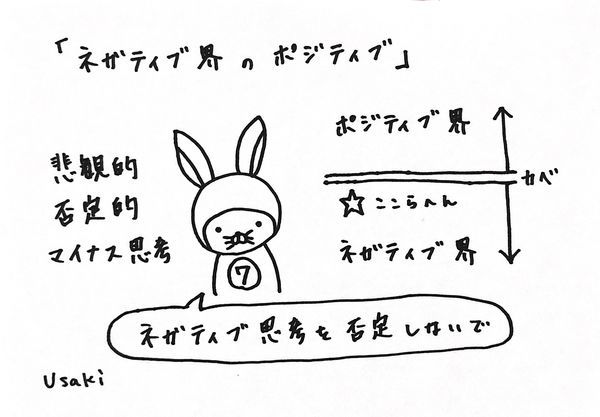 「ネガティブ界のポジティブ」
悲観的
否定的
マイナス思考
ポジティブ界
カベ
☆ここらへん
ネガティブ界
7
ネガティブ思考を否定しないで
Usaki